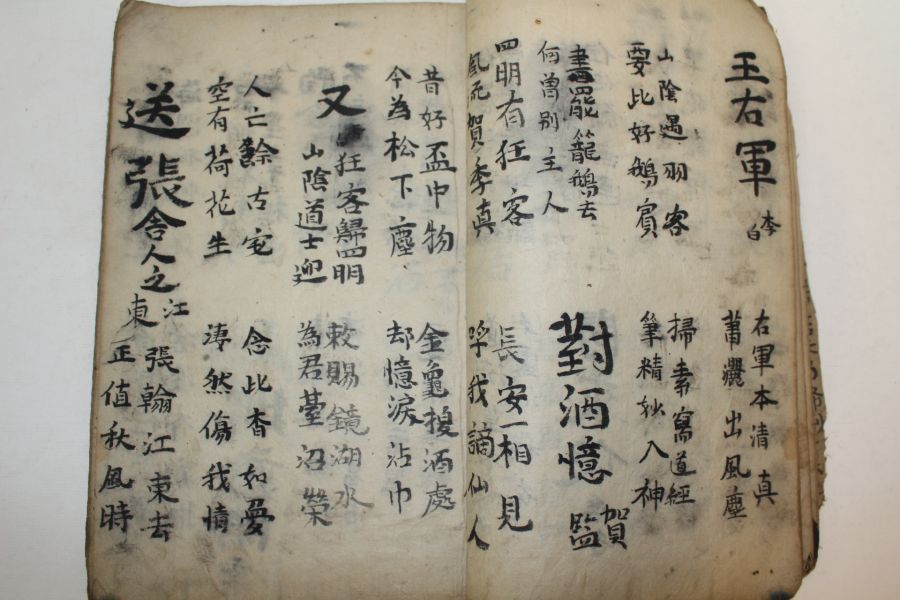 王右軍 李白
右軍本清真
蕭灑出風塵
山陰遇羽客
要比好鵝賓
掃素寫道經
筆精妙入神
書罷籠鵝去
何曾別主人
對酒憶賀監
四明有狂客
風流賀季真
長安一相見
呼我謫仙人
昔好盃中物
今為松下塵
金龜換酒處
却憶淚沾巾
又
狂客歸四明
山陰道士迎
敕賜鏡湖水
為君臺沼榮
人亡餘古宅
空有荷花生
念此杳如夢
凄然傷我情
送張舍人之江東
張翰江東去
正值秋風時